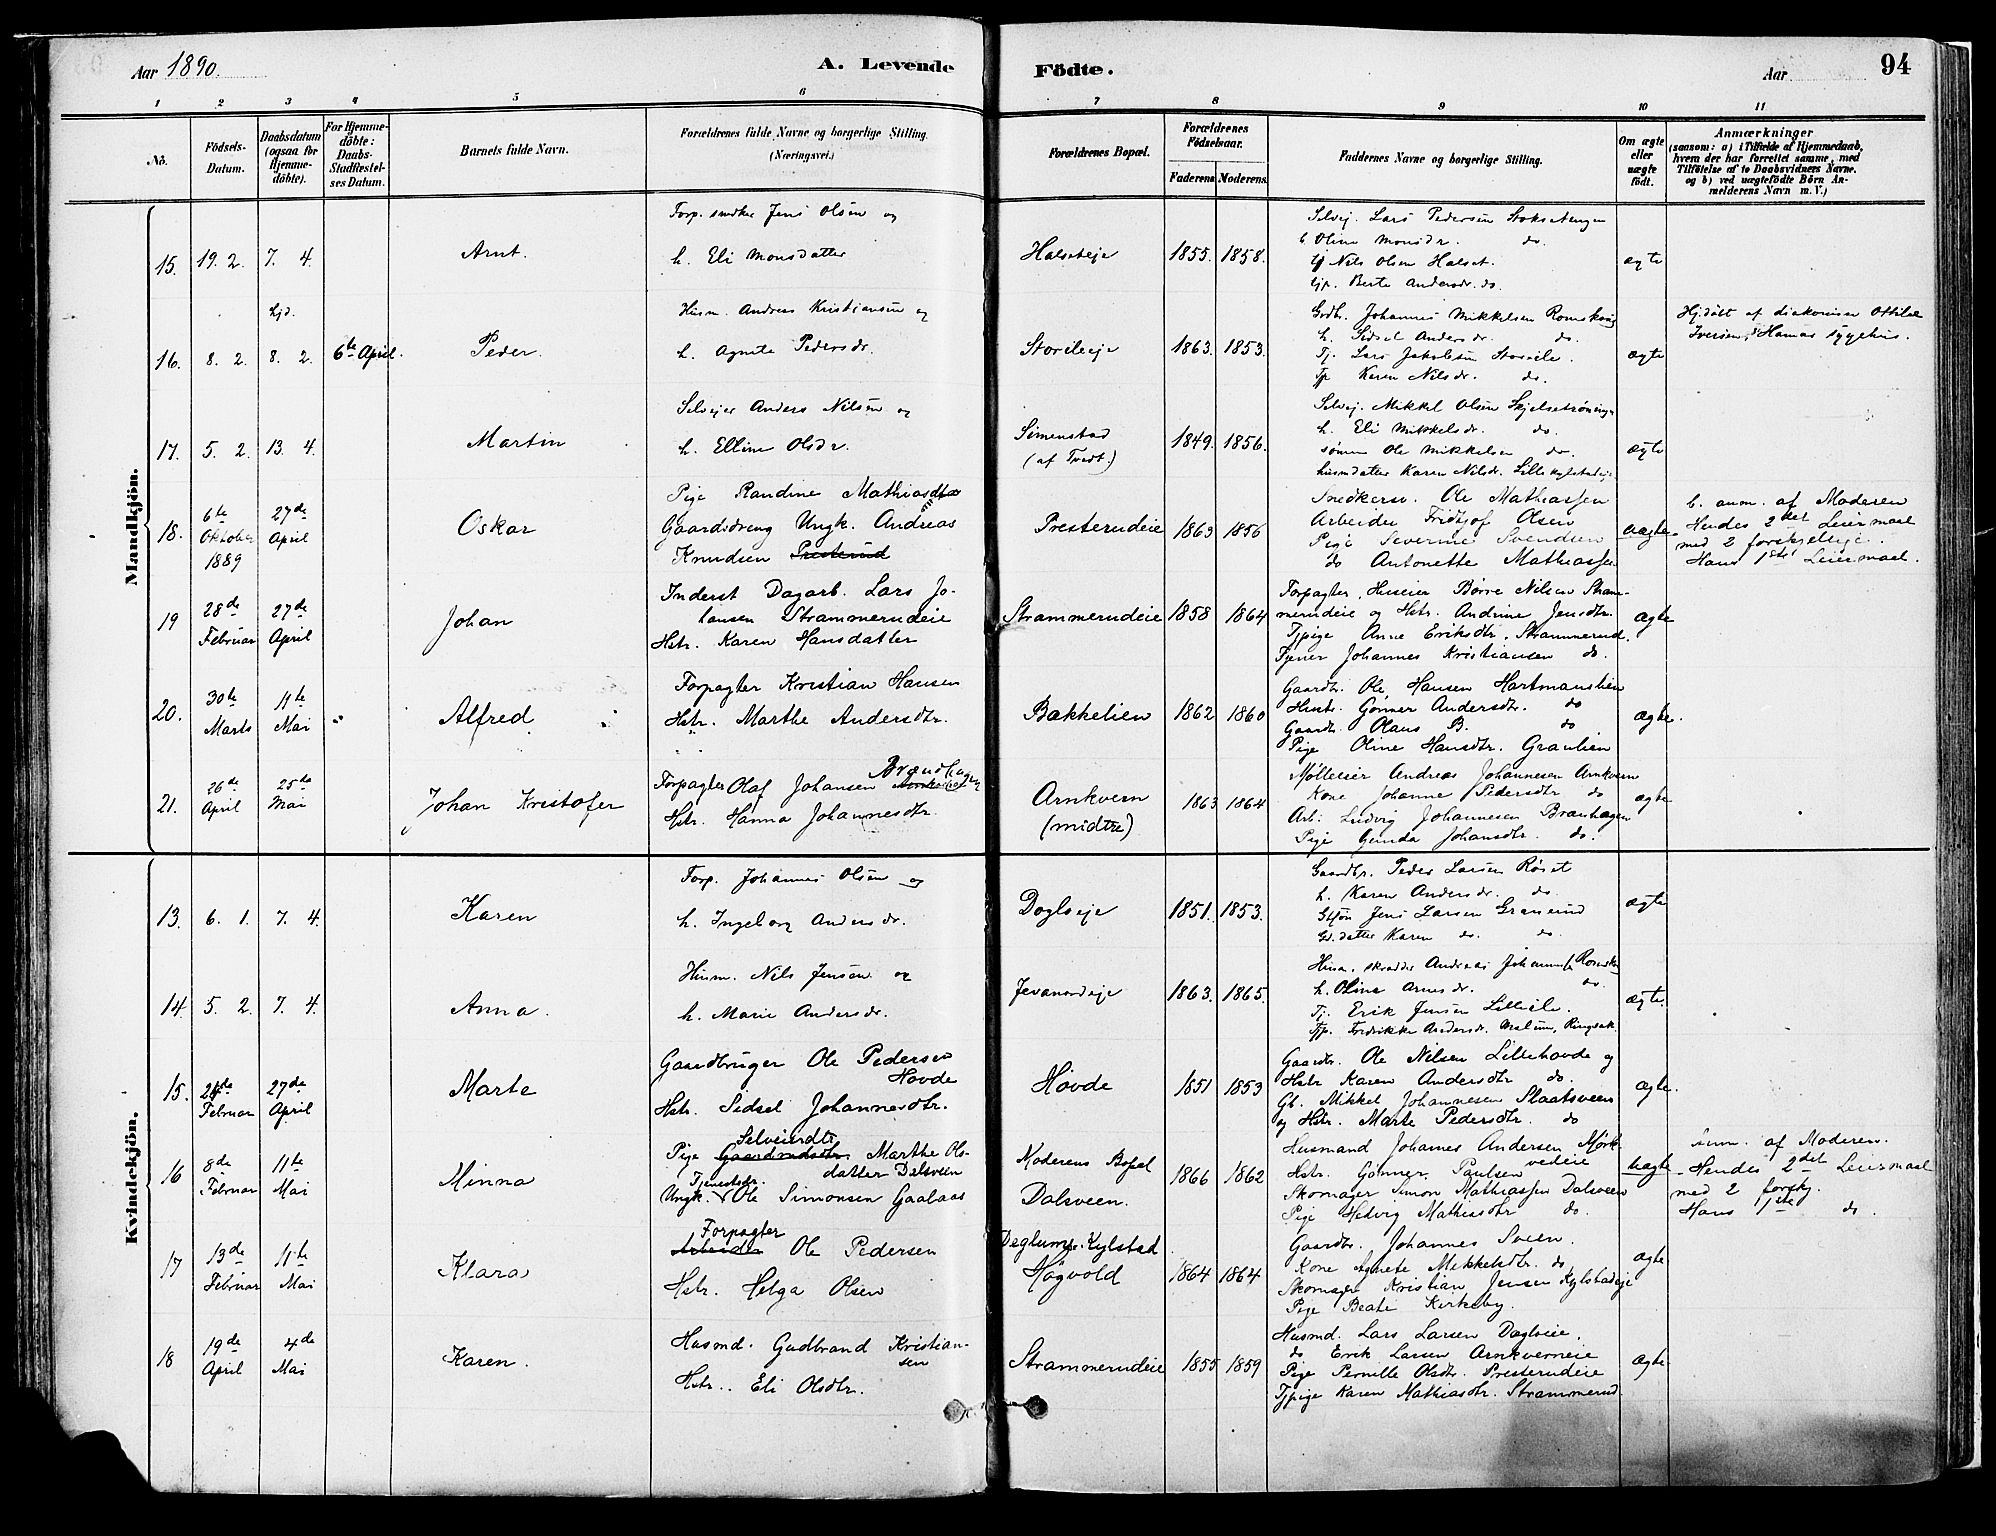 Aar 1890.
A. Levende Födte.
Aar
94
1 2 3 4 5 6 7 8 9 10 11
No.
Födsels-Datum.
Daabsdatum (ogsaa for Hjemme-döbte).
For Hjemme-döbte: Daabs-Stadfæstel-ses Datum.
Barnets fulde Navn.
Forældrenes fulde Navne og borgerlige Stilling. (Næringsvei.)
Forældrenes Bopæl.
Forældrenes Födselsaar.
Faderens Moderens.
Faddernes Navne og borgerlige Stilling.
Om ægte eller uægte födt.
Anmærkninger
(saasom: a) i Tilfælde af Hjemmedaab, hvem der har forrettet samme, med Tilföielse af to Daabsvidners Navne. og b) ved uægtefödte Börn Anmelderens Navn m. V.)
Mandkjön.
15. 19. 2. 7. 4. Arnt.
Forp. snedker Jens Olsen og
h. Eli Monsdatter
Halseteje 1855. 1858.
Selvej. Lars Pedersen Stoksetengen
h Oline Monsdr. do.
Nils Olsen Halset.
Berte Andersdr. do.
ægte
16. 8. 2. hjd. 8. 2. 6te April. Peder.
Husm. Andreas Kristiansen og
h. Agnete Pedersdr.
Storileeje 1863. 1853.
Grdb. Johannes Mikkelsen Romskoug
h. Sidsel Andersdr. do.
Tj. Lars Jakobsen Storeile.
Tjp Karen Nilsdr. do.
ægte
Hjdöbt af diakonisse Ottilie
Iversen, Hamar sygehus.
17. 5. 2. 13. 4. Martin
Selvejer Anders Nilsen og
h. Elline Olsdr.
Simenstad
(af Tvedt.)
1849. 1856.
Selvej. Mikkel Olsen Skjelsetröningen
h. Eli Mikkelsdr. do.
sönnen Ole Mikkelsen do.
husmdatter Karen Nilsdr. Lillekylstadeje
ægte
18. 6te Oktober 1889 27de April Oskar
Pige Randine Mathiasdtr
Gaardsdreng Ungk. Andreas
Knudsen Presterud
Presterudeie 1863 1856
Snedkersv. Ole Mathiassen
Arbeider Fridtjof Olsen
Pige Severine Svendsen
do Antonette Mathiassen
uægte
b. anm. af Moderen
Hendes 2det Leiermaal
med 2 forskjellige.
Hans 1ste Leiermaal.
19 28de Februar 27de April Johan
Inderst Dagarb. Lars Jo-
hansen Strammerudeie
Hstr. Karen Hansdatter
Strammerudeie 1858 1864
Forpagter, Huseier Börre Nilsen Stram-
merudeie og Hstr. Andrine Jensdtr.
Tjpige Anne Eriksdtr. Strammerud.
Tjener Johannes Kristiansen do.
ægte
20. 30te Marts 11te Mai Alfred
Forpagter Kristian Hansen
Hstr. Marthe Andersdtr.
Bakkelien 1862 1860
Gaardbr. Ole Hansen Hartmanslien
Hustr. Gönner Andersdtr. do
Gaardbr. Olaus B. do
Pige Oline Hansdtr. Graulien
ægte.
21. 26de April 25de Mai Johan Kristofer
Forpagter Olaf Johansen Brændhagen
Hstr. Hanna Johannesdtr.
Arnkvern
(midtre)
1863 1864
Mölleeier Andreas Johannesen Arnkvern
Kone Johanne Pedersdtr do
Arb. Ludvig Johannesen Branhagen
Pige Gunda Johansdtr. do.
ægte
Kvindekjön.
13. 6. 1. 7. 4. Karen
Forp. Johannes Olsen og
h. Ingeborg Andersdr.
Dogloeje 1851. 1853.
Gaardbr. Peder Larsen Röset
h. Karen Andersdr. do.
Jens Larsen Granerud
Gd. datter Karen do. do.
ægte
14 5. 2. 7. 4. Anna.
Husm. Nils Jensen og
h. Marie Andersdr.
Jevanordeje 1863. 1865.
Husm. skrædder Andreas Johannesen
h. Oline Arnesdr. do.
Tj. Erik Jensen Lilleile.
Tjp. Fredrikke Andersdr. Malum, Ringsak.
ægte.
15. Februar 27de April Marte
Gaardbruger Ole Pedersen
Hovde
Hstr. Sidsel Johannesdtr.
Hovde 1851 1853
Gaardbr. Ole Nilsen Lillehovde og
Hstr Karen Andersdtr do.
Gb. Mikkel Johannesen Slaatsveen
og Hstr. Marte Pedersdtr. do
ægte
16 8de Februar 11te Mai Minna
Selveierdtr
Pige Marthe Ols-
datter Dalsveen
Tjenestedr.
Ungk. Ole Simonsen Gaalaas
Moderens Bopæl
Dalsveen.
1866 1862
Husmand Johannes Andersen Mörk-
vedeie
Hstr. Gönner Paulsen
Skomager Simon Mathiassen Dalsveen
Pige Hedvig Mathiasdtr do.
uægte
Anm. af Moderen.
Hendes 2det Leiermaal
med 2 forskj.
Hans 1ste do.
17 13de Februar 11te Mai Klara
Forpagter
Arbeider Ole Pedersen
Hstr. Helga Olsen
Kylstad
Högvold
1864 1864
Gaardbr. Johannes Sveen.
Kone Agnete Mikkelsdtr. do
Skomager Kristian Jensen Kylstadeje
Pige Beate Kirkeby.
ægte
18 19de April 4de Mai Karen.
Husmd. Gudbrand Kristian-
sen
Hstr. Eli Olsdtr.
Strammerudeie 1855 1859
Husmd. Lars Larsen Dagloeie.
do Erik Larsen Arnkverneie
Pige Pernille Olsdtr. Presterudeie
Tjpige Karen Mathiasdtr. Strammerud
ægte